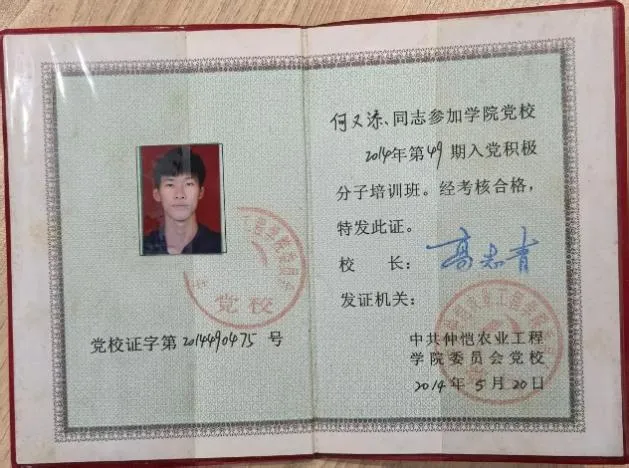 党校
党校证字第2014490475号
何又添、同志参加学院党校
2014年第49期入党积极
分子培训班。经考核合格，
特发此证。
校　长：高志青
发证机关：
中共仲恺农业工程
学院委员会党校
2014年5月20日